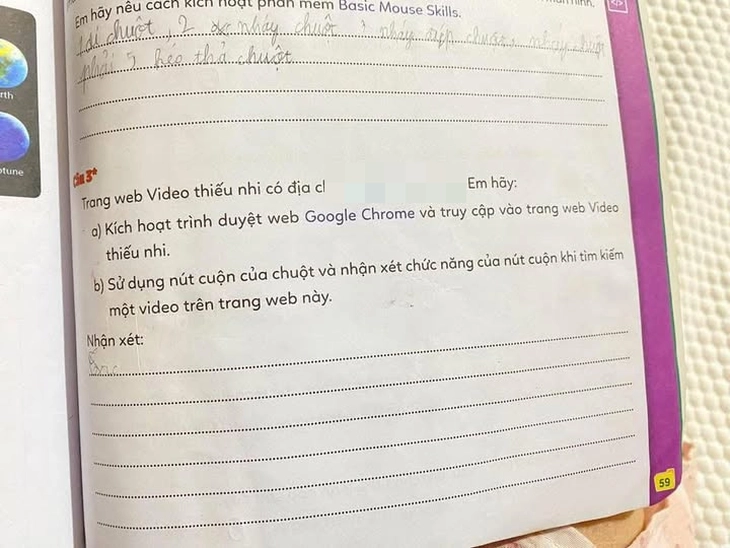 Em hãy nêu cách kích hoạt phần mềm Basic Mouse Skills.
chuột, 2 nháy chuột, nháy chuột
phải, kéo thả chuột
rth
ptune
Câu 3*
Trang web Video thiếu nhi có địa cl Em hãy:
a) Kích hoạt trình duyệt web Google Chrome và truy cập vào trang web Video
thiếu nhi.
b) Sử dụng nút cuộn của chuột và nhận xét chức năng của nút cuộn khi tìm kiếm
một video trên trang web này.
Nhận xét:
59